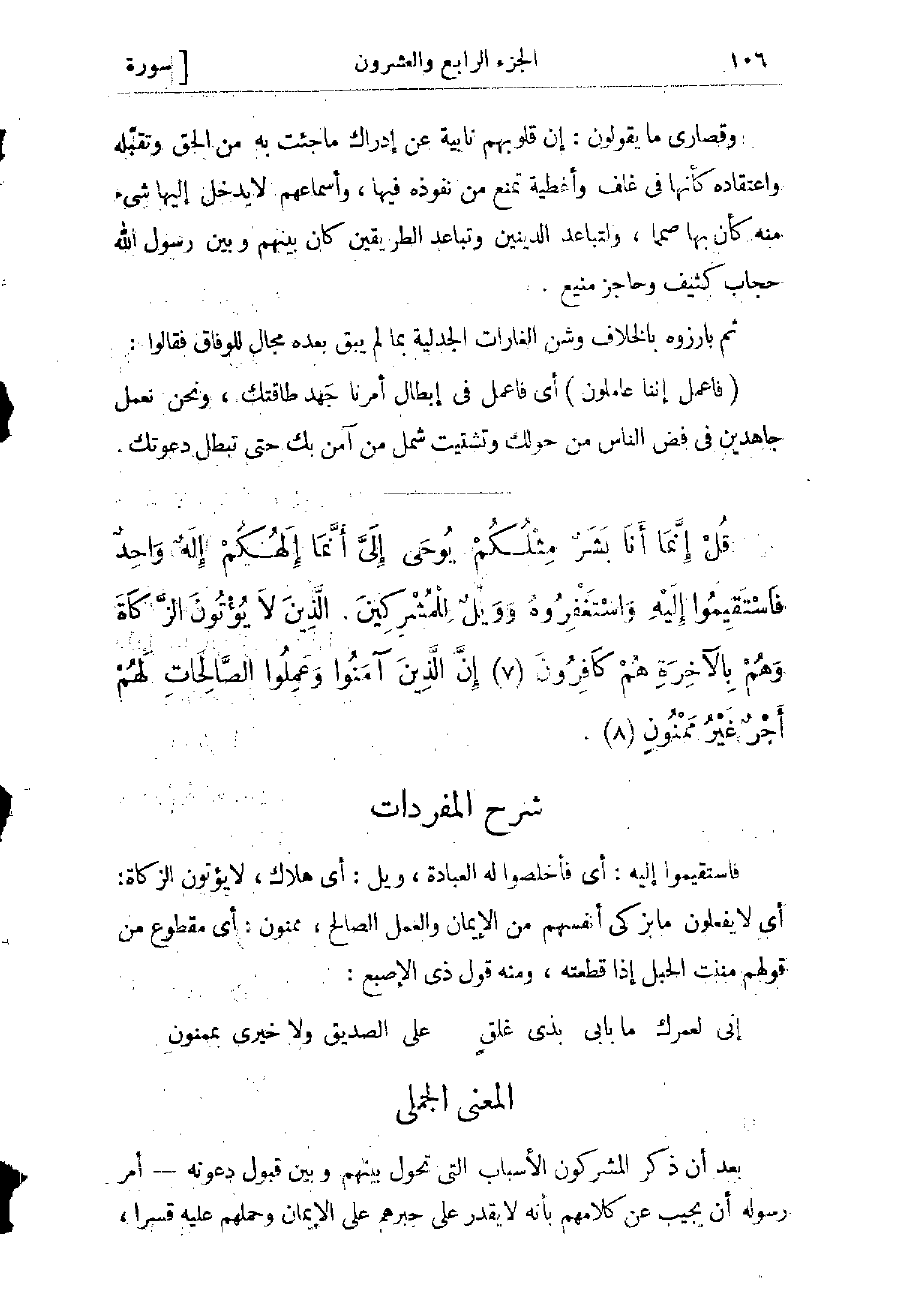 ١٠٦ الجزء الرابع والعشرون [ سورة
وقصارى ما يقولون : إن قلوبهم نابية عن إدراك ما جئت به من الحق وتقبّله
واعتقاده كأنها فى غلف وأغطية تمنع من نفوذه فيها ، وأسماعهم لا يدخل إليها شىء
منه كأن بها صمما ، ولتباعد الدينين وتباعد الطريقين كان بينهم وبين رسول الله
حجاب كثيف وحاجز منيع .
ثم بارزوه بالخلاف وشن الغارات الجدلية بما لم يبق بعده مجال للوفاق فقالوا :
( فاعمل إننا عاملون ) أى فاعمل فى إبطال أمرنا جَهد طاقتك ، ونحن نعمل
جاهدين فى فض الناس من حولك وتشتيت شمل من آمن بك حتى تبطل دعوتك .
قُلْ إِنَّمَا أَنَا بَشَرٌ مِثْلُكُمْ يُوحَى إِلَىَّ أَنَّمَا إِلَهُكُمْ إِلَهٌ وَاحِدٌ
فَاسْتَقِيمُوا إِلَيْهِ وَاسْتَغْفِرُوهُ وَوَيْلٌ لِلْمُشْرِكِينَ . الَّذِينَ لاَ يُؤْتُونَ الزَّكَاةَ
وَهُمْ بِالْآخِرَةِ هُمْ كَافِرُونَ (٧) إِنَّ الَّذِينَ آمَنُوا وَعَمِلُوا الصَّالِحَاتِ لَهُمْ
أَجْرٌ غَيْرُ مَمْنُونٍ (٨) .
شرح المفردات
فاستقيموا إليه : أى فأخلصوا له العبادة ، ويل : أى هلاك ، لا يؤتون الزكاة :
أى لا يفعلون ما يزكى أنفسهم من الإيمان والعمل الصالح ، ممنون : أى مقطوع من
قولهم مننت الحبل إذا قطعته ، ومنه قول ذى الإصبع :
إنى لعمرك ما بابى بذى غلقٍ على الصديق ولا خيرى بممنون
المعنى الجملى
بعد أن ذكر المشركون الأسباب التى تحول بينهم وبين قبول دعوته — أمر
رسوله أن يجيب عن كلامهم بأنه لا يقدر على جبرهم على الإيمان وحملهم عليه قسرا ،